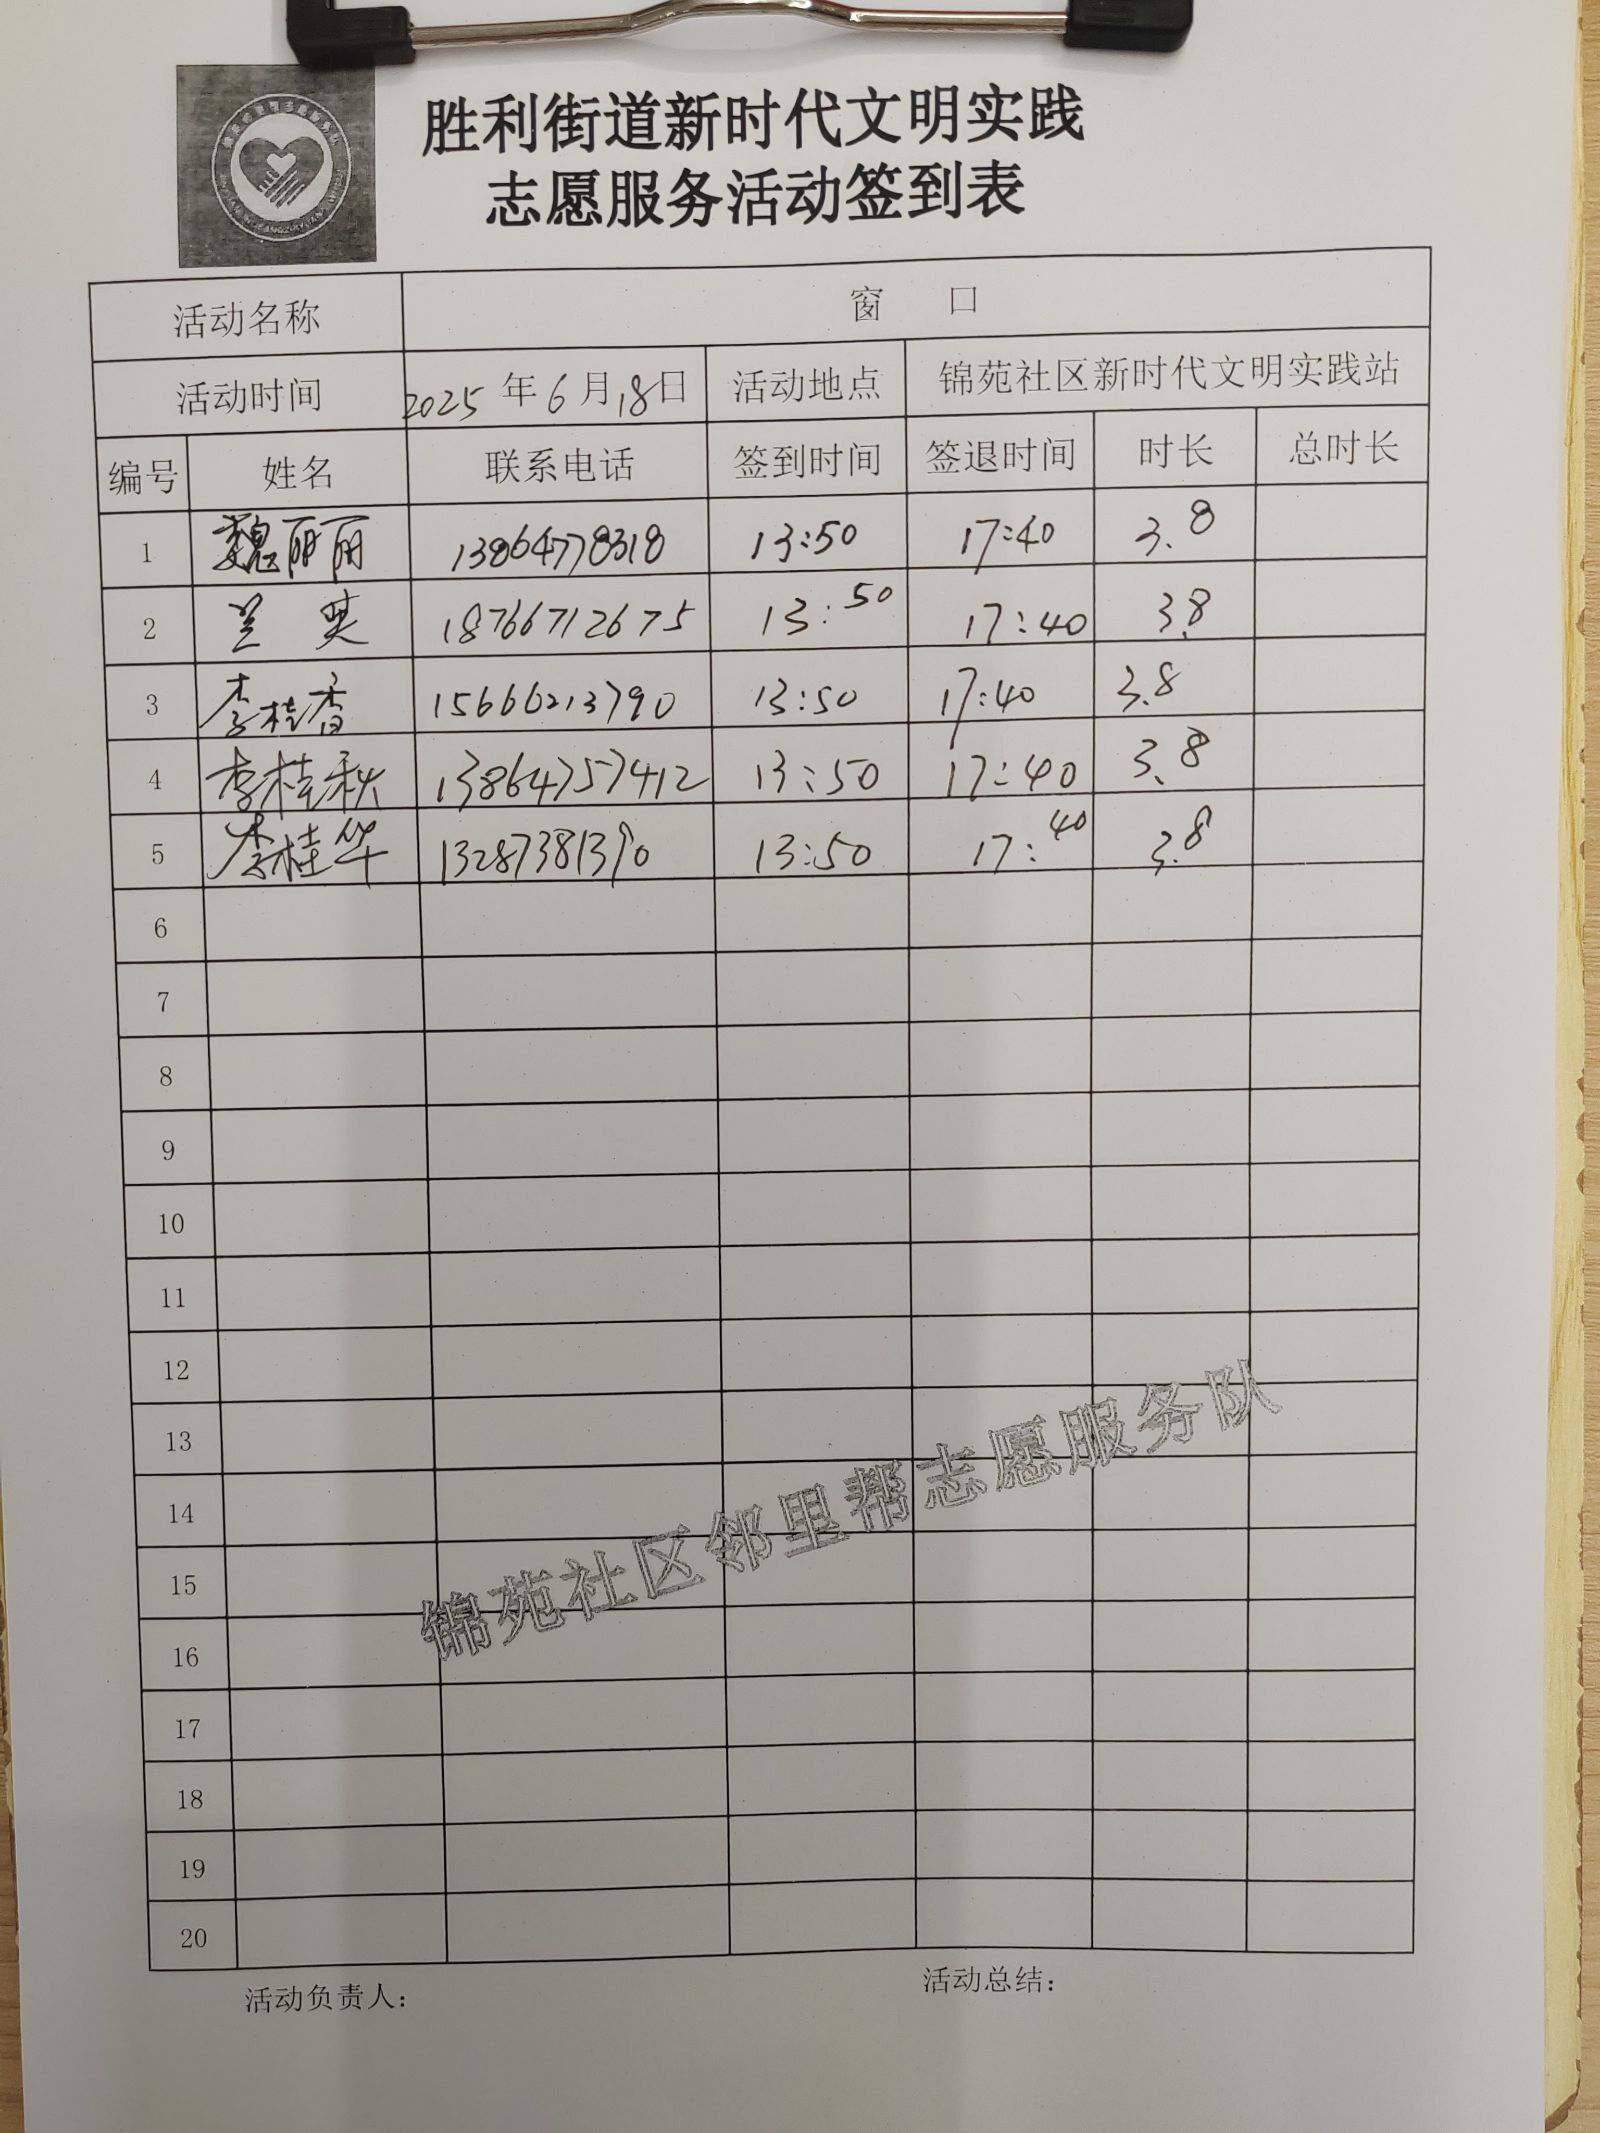 胜利街道新时代文明实践
志愿服务活动签到表
活动名称 窗 口
活动时间 2025年6月18日 活动地点 锦苑社区新时代文明实践站
编号 姓名 联系电话 签到时间 签退时间 时长 总时长
1 魏丽丽 13864778318 13:50 17:40 3.8
2 兰英 18766712675 13:50 17:40 3.8
3 李桂香 15666213790 13:50 17:40 3.8
4 李桂秋 13864757412 13:50 17:40 3.8
5 李桂华 13287381390 13:50 17:40 3.8
6
7
8
9
10
11
12
13
14
15
16
17
18
19
20
锦苑社区邻里帮志愿服务队
活动负责人： 活动总结：